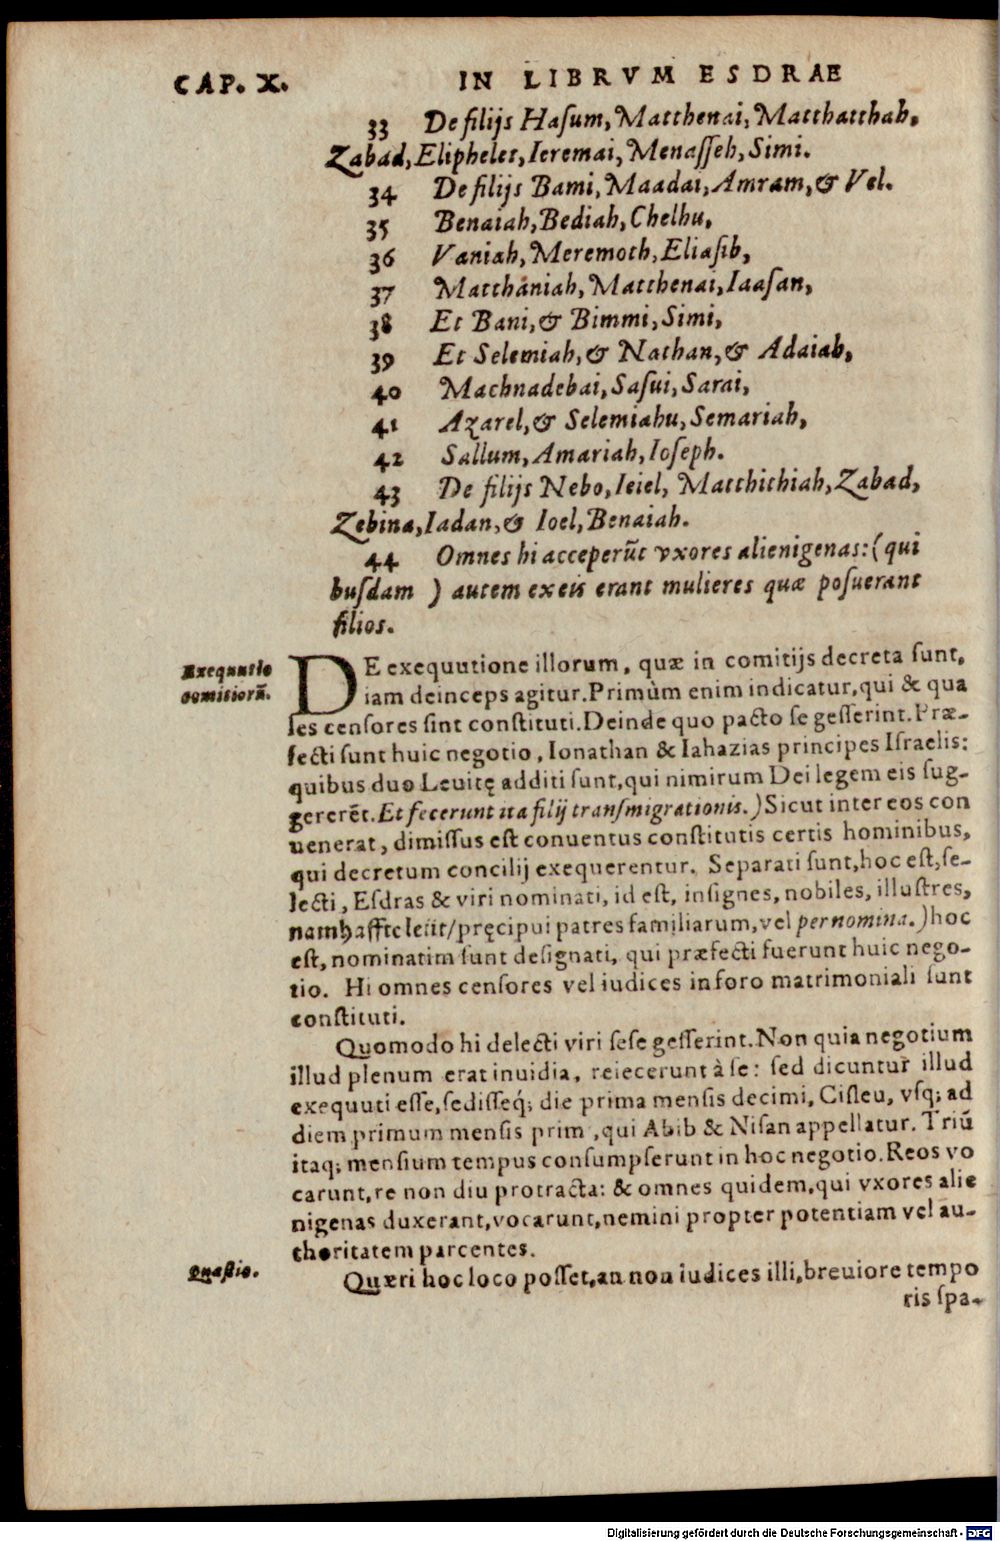 CAP. X. IN LIBRVM ESDRAE
33 De filijs Hasum, Matthenai, Matthatthah,
Zabad, Eliphelet, Ieremai, Menasseh, Simi.
34 De filijs Bami, Maadai, Amram, & Vel.
35 Benaiah, Bediah, Chelhu,
36 Vaniah, Meremoth, Eliasib,
37 Matthaniah, Matthenai, Iaasan,
38 Et Bani, & Bimmi, Simi,
39 Et Selemiah, & Nathan, & Adaiah,
40 Machnadebai, Sasui, Sarai,
41 Azarel, & Selemiahu, Semariah,
42 Sallum, Amariah, Ioseph.
43 De filijs Nebo, Ieiel, Matthithiah, Zabad,
Zebina, Iadan, & Ioel, Benaiah.
44 Omnes hi acceperūt vxores alienigenas: (qui
busdam ) autem ex eis erant mulieres quæ posuerant
filios.
Exequutio
comitiorū.
DE exequutione illorum, quæ in comitijs decreta sunt,
iam deinceps agitur. Primùm enim indicatur, qui & qua
les censores sint constituti. Deinde quo pacto se gesserint. Præ-
fecti sunt huic negotio, Ionathan & Iahazias principes Israelis:
quibus duo Leuitę additi sunt, qui nimirum Dei legem eis sug-
gererēt. Et fecerunt ita filij transmigrationis.) Sicut inter eos con
uenerat, dimissus est conuentus constitutis certis hominibus,
qui decretum concilij exequerentur. Separati sunt, hoc est, se-
lecti, Esdras & viri nominati, id est, insignes, nobiles, illustres,
namhaffte leüt/ pręcipui patres familiarum, vel per nomina.) hoc
est, nominatim sunt designati, qui præfecti fuerunt huic nego-
tio. Hi omnes censores vel iudices in foro matrimoniali sunt
constituti.
Quomodo hi delecti viri sese gesserint. Non quia negotium
illud plenum erat inuidia, reiecerunt à se: sed dicuntur illud
exequuti esse, sedisseq; die prima mensis decimi, Cisleu, vsq; ad
diem primum mensis prim, qui Abib & Nisan appellatur. Triū
itaq; mensium tempus consumpserunt in hoc negotio. Reos vo
carunt, re non diu protracta: & omnes quidem, qui vxores alie
nigenas duxerant, vocarunt, nemini propter potentiam vel au-
thoritatem parcentes.
Quæstio.
Quæri hoc loco posset, an non iudices illi, breuiore tempo
ris spa-
Digitalisierung gefördert durch die Deutsche Forschungsgemeinschaft - DFG